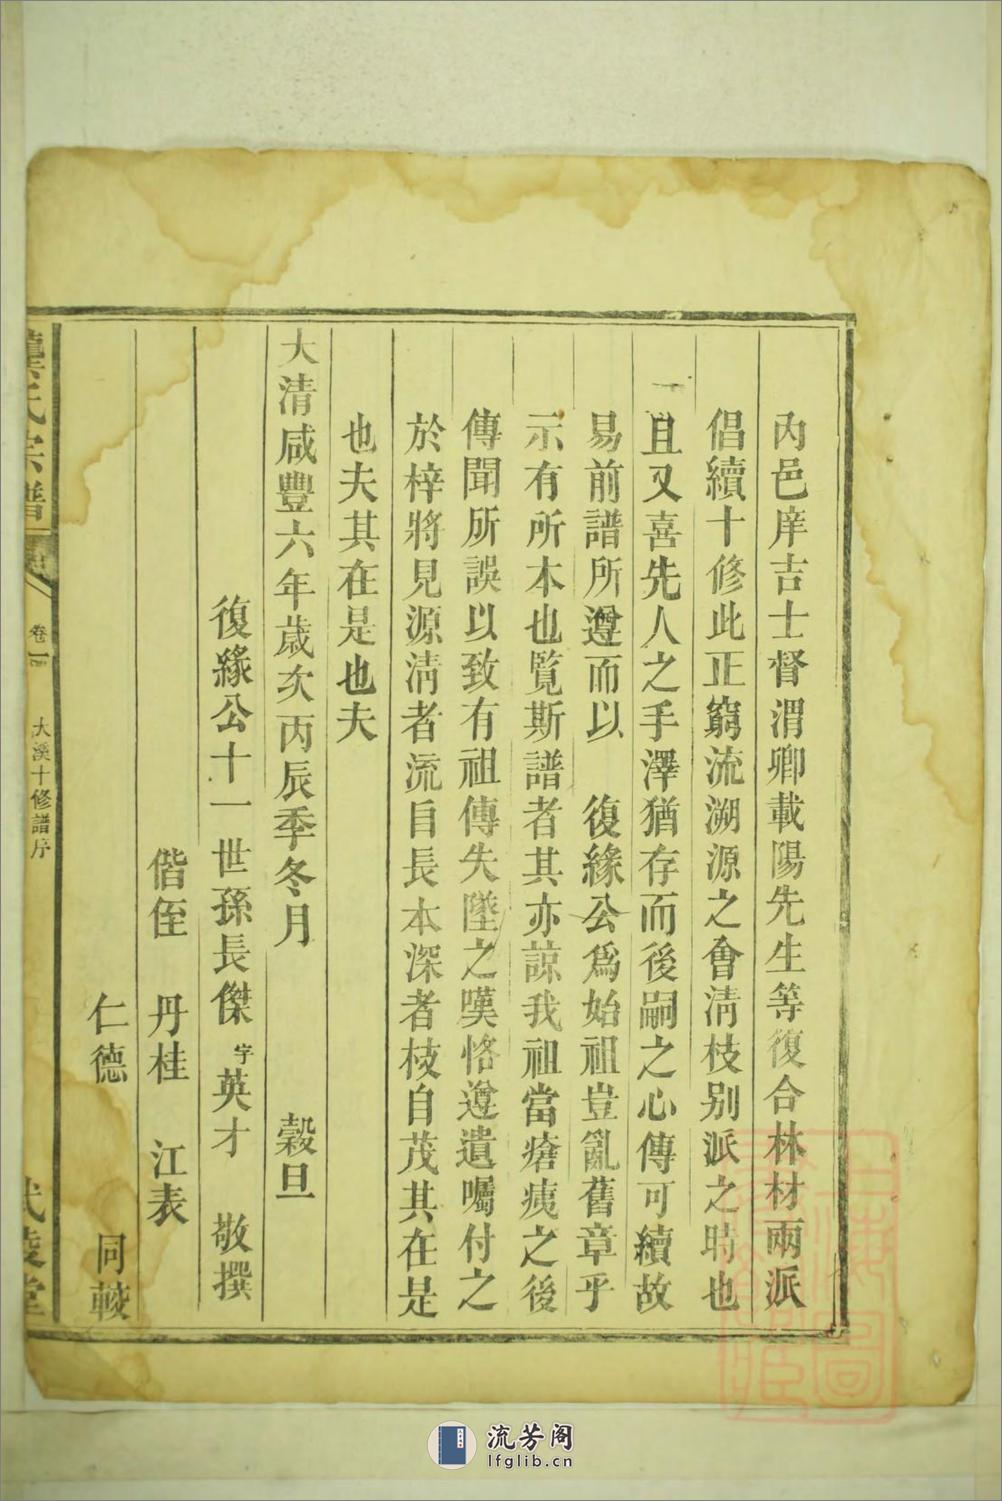 內邑庠吉士督渭卿載陽先生等復合林材兩派
倡續十修此正窮流溯源之會清枝別派之時也
一且又喜先人之手澤猶存而後嗣之心傳可續故
易前譜所遵而以　復緣公爲始祖豈亂舊章乎
示有所本也覽斯譜者其亦諒我祖當瘡痍之後
傳聞所誤以致有祖傳失墜之嘆恪遵遺囑付之
於梓將見源清者流自長本深者枝自茂其在是
也夫其在是也夫
大清咸豐六年歲次丙辰季冬月　穀旦
復緣公十一世孫長傑字英才　敬撰
偕侄　丹桂　江表
仁德　同較
龔氏宗譜
卷一
大溪十修譜序
武陵堂
上海圖書館藏
流芳阁
lfglib.cn